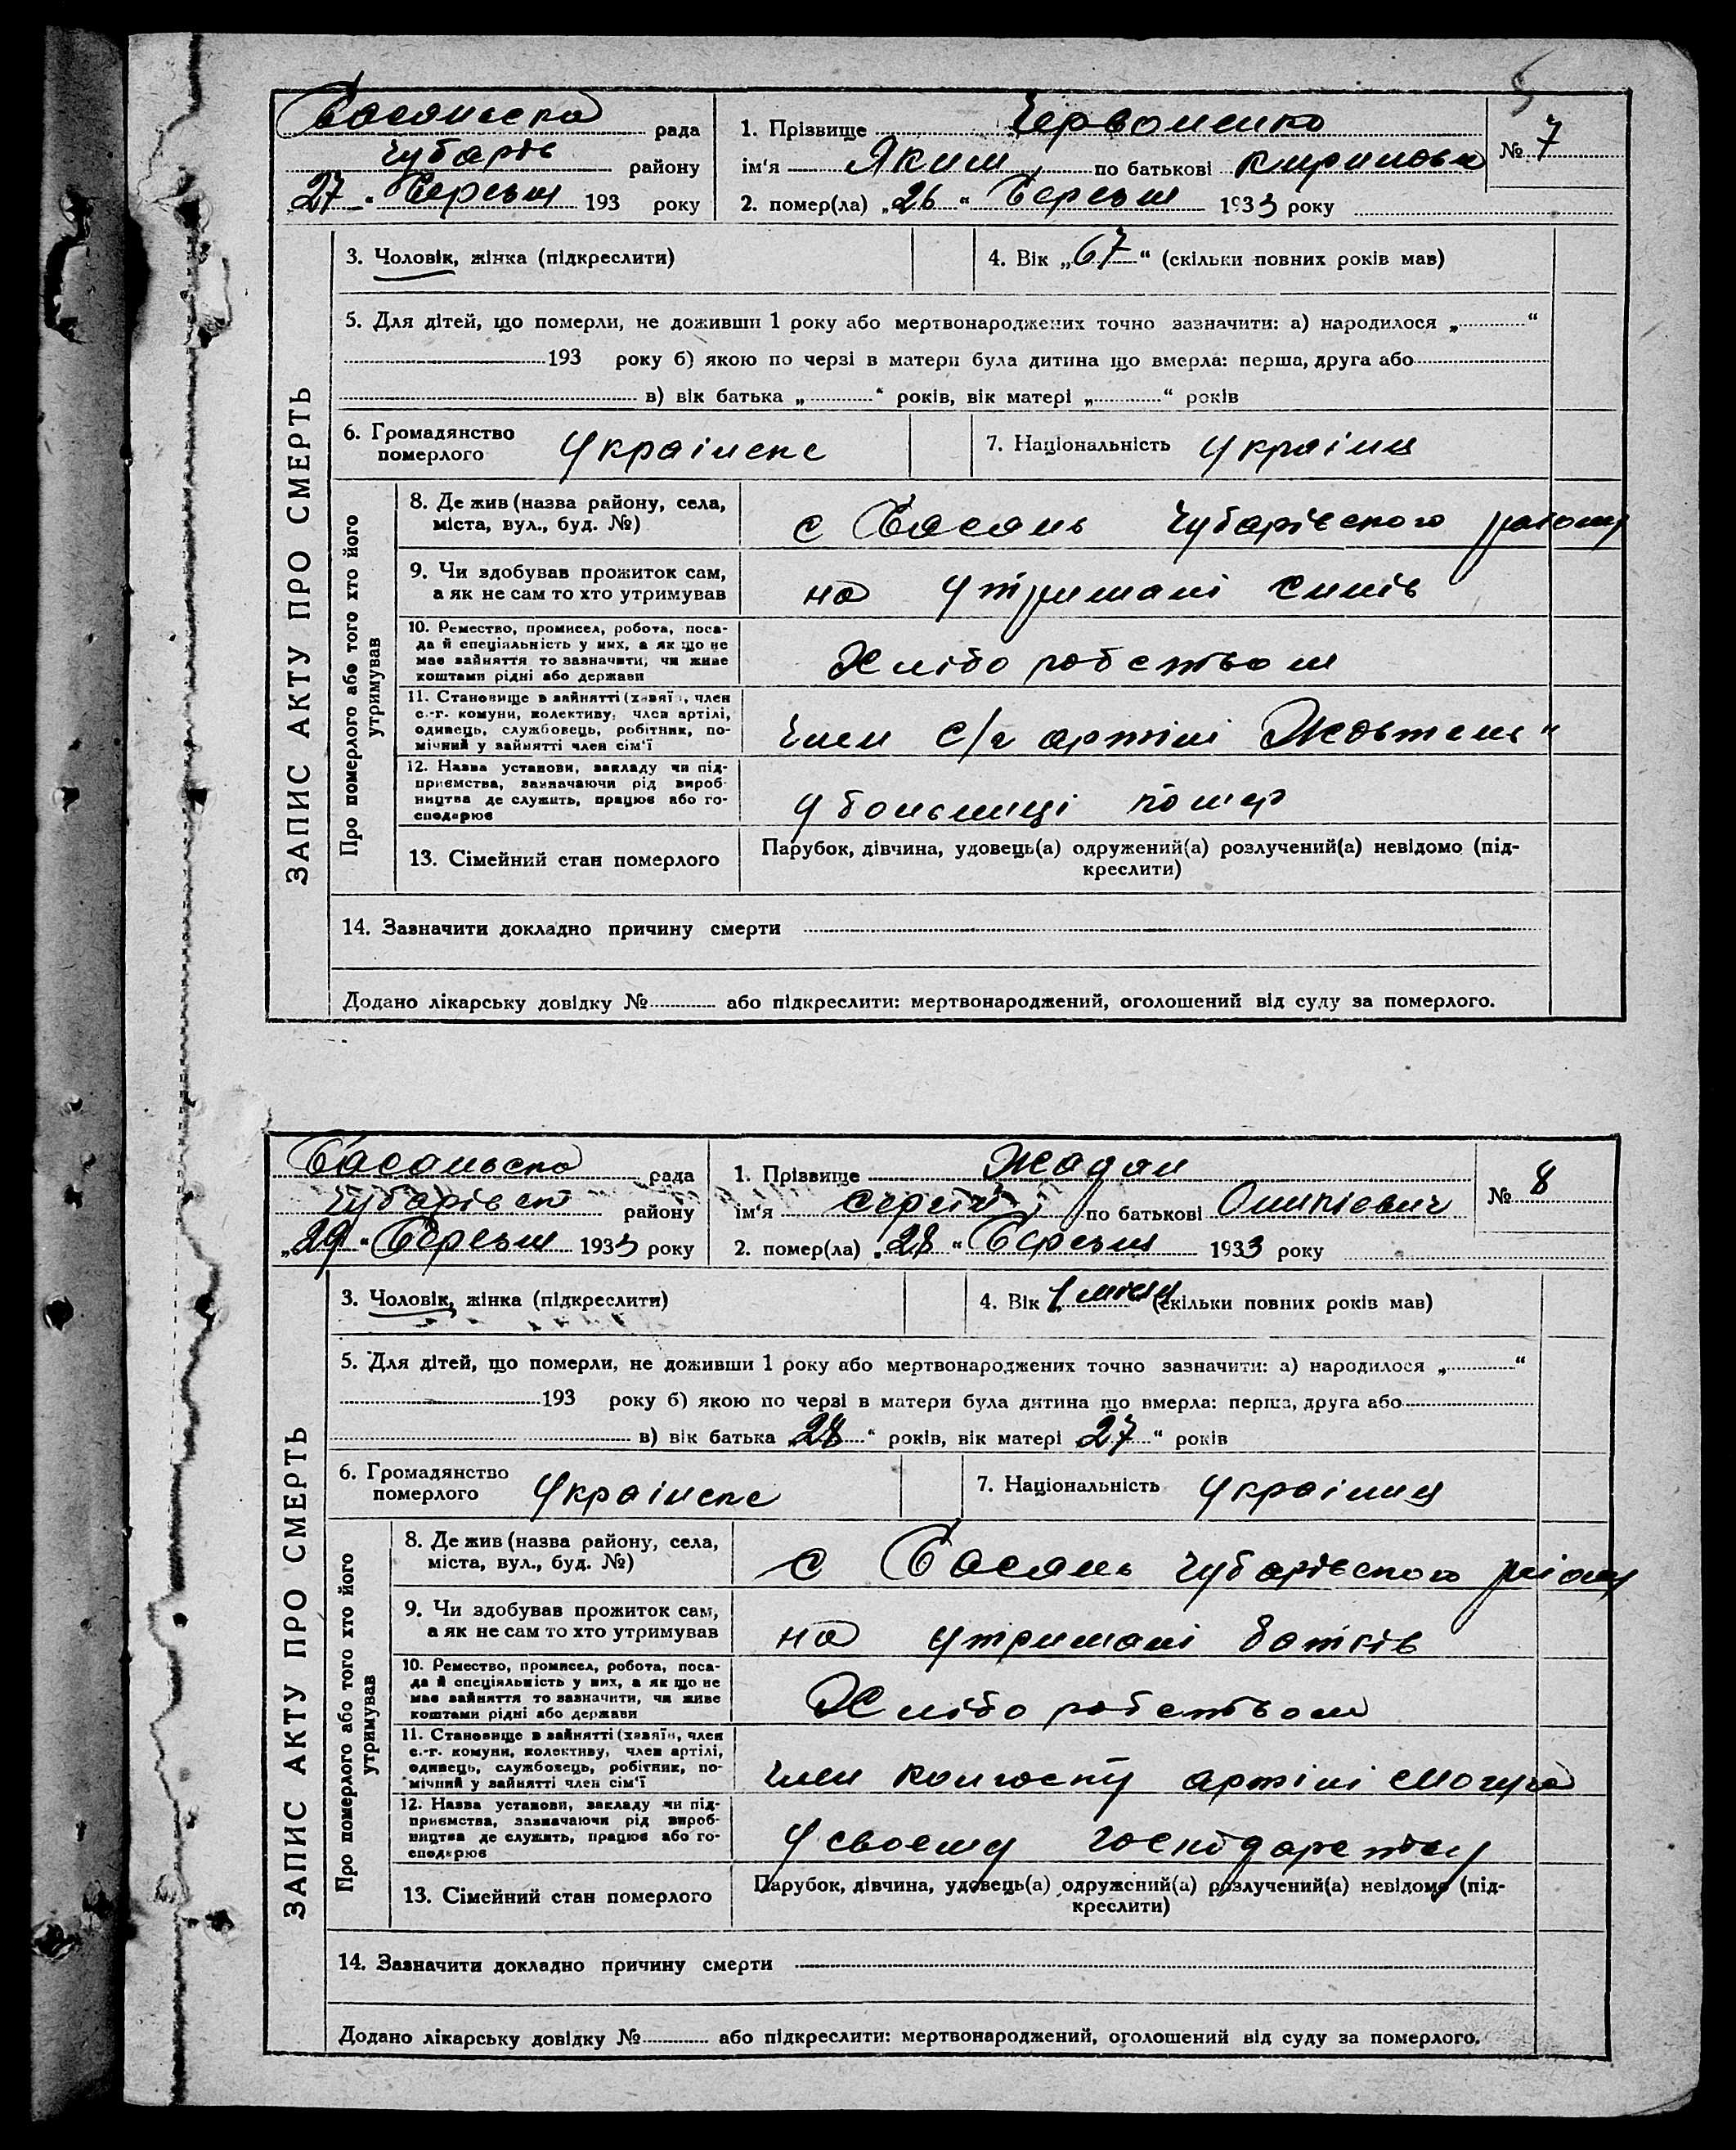 Басанська рада
Чубарів району
„27“ Березня 193 року
1. Прізвище Червоненко
ім'я Яким по батькові Кирилова
№ 7
2. помер(ла) „26“ Березня 1933 року
3. Чоловік, жінка (підкреслити)
4. Вік „67“ (скільки повних років мав)
5. Для дітей, що померли, не доживши 1 року або мертвонароджених точно зазначити: а) народилося „ “
193 року б) якою по черзі в матери була дитина що вмерла: перша, друга або
в) вік батька „ “ років, вік матері „ “ років
6. Громадянство
померлого
Українске
7. Національність Україня
ЗАПИС АКТУ ПРО СМЕРТЬ
Про померлого або того хто його
утримував
8. Де жив (назва району, села,
міста, вул., буд. №)
с Басань Чубарівського району
9. Чи здобував прожиток сам,
а як не сам то хто утримував
на утримані синів
10. Ремество, промисел, робота, поса-
да й спеціяльність у них, а як що не
має зайняття то зазначити, чи живе
коштами рідні або держави
Хліборобством
11. Становище в зайнятті (хазяїн, член
с.-г. комуни, колективу, член артілі,
одинець, службовець, робітник, по-
мічний у зайнятті член сім'ї
Член с/г артілі Жовтень“
12. Назва установи, закладу чи під-
приємства, зазначаючи рід вироб-
ництва де служить, працює або го-
сподарює
У больниці помер
13. Сімейний стан померлого
Парубок, дівчина, удовець(а) одружений(а) розлучений(а) невідомо (під-
креслити)
14. Зазначити докладно причину смерти
Додано лікарську довідку № або підкреслити: мертвонароджений, оголошений від суду за померлого.
Басанська рада
Чубарівск району
„29“ Березня 1933 року
1. Прізвище Жадан
ім'я Сергій по батькові
№ 8
2. помер(ла) „28“ Березня 1933 року
3. Чоловік, жінка (підкреслити)
4. Вік 1 місяц (скільки повних років мав)
5. Для дітей, що померли, не доживши 1 року або мертвонароджених точно зазначити: а) народилося „ “
193 року б) якою по черзі в матери була дитина що вмерла: перша, друга або
в) вік батька „28“ років, вік матері „27“ років
6. Громадянство
померлого
Українске
7. Національність Українця
ЗАПИС АКТУ ПРО СМЕРТЬ
Про померлого або того хто його
утримував
8. Де жив (назва району, села,
міста, вул., буд. №)
с Басань Чубарівского району
9. Чи здобував прожиток сам,
а як не сам то хто утримував
на утримані батків
10. Ремество, промисел, робота, поса-
да й спеціяльність у них, а як що не
має зайняття то зазначити, чи живе
коштами рідні або держави
Хліборобством
11. Становище в зайнятті (хазяїн, член
с.-г. комуни, колективу, член артілі,
одинець, службовець, робітник, по-
мічний у зайнятті член сім'ї
Член колгоспу артілі
12. Назва установи, закладу чи під-
приємства, зазначаючи рід вироб-
ництва де служить, працює або го-
сподарює
У своєму господарству
13. Сімейний стан померлого
Парубок, дівчина, удовець(а) одружений(а) розлучений(а) невідомо (під-
креслити)
14. Зазначити докладно причину смерти
Додано лікарську довідку № або підкреслити: мертвонароджений, оголошений від суду за померлого.